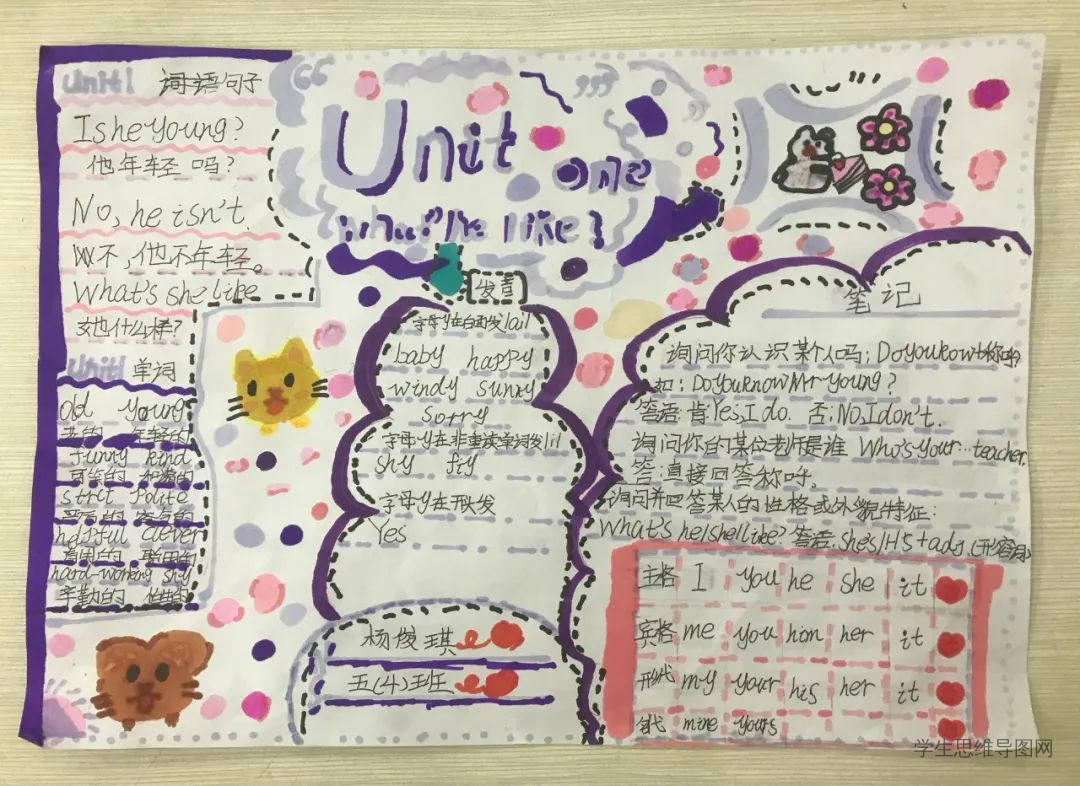 Unit1 词语句子
Is he young?
他年轻吗?
No, he isn't.
不,他不年轻。
What's she like
她什么样?
Unit1 单词
old young
年轻的
funny kind
可笑的 和蔼的
strict polite
严厉的 客气的
helpful clever
有用的 聪明的
hard-working shy
辛勤的
Unit one
What's he like?
发音
字母y在
baby happy
windy sunny
sorry
字母y在非重读单词发
shy fly
字母y在
Yes
杨俊琪
五(4)班
笔记
询问你认识某个人吗:Do you know
如:Do you know Mr Young?
答语:肯Yes,I do. 否:No,I don't.
询问你的某位老师是谁 Who's your…teacher.
答:直接回答称呼。
询问并回答某人的性格或外貌特征:
What's he/she like? 答语:She's/He's+adj.(形容词)
主格 I you he she it
宾格 me you him her it
my your his her it
mine yours
学生思维导图网